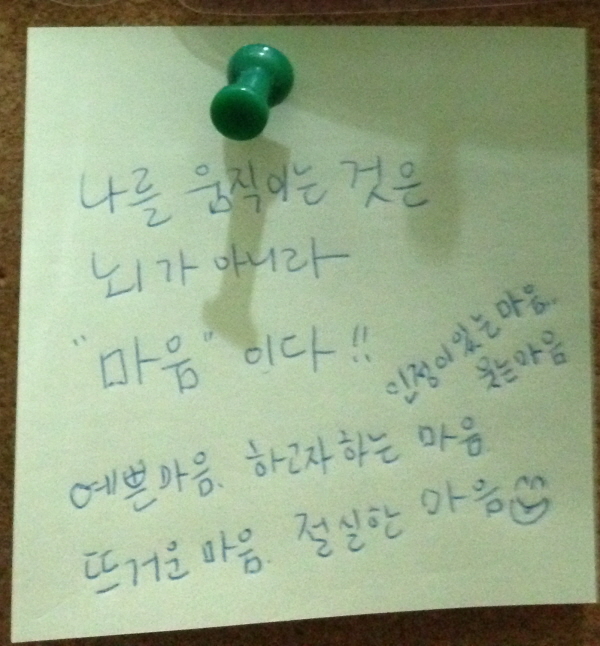 나를 움직이는 것은
뇌가 아니라
"마음" 이다!!
인정이 있는 마음.
웃는 마음
예쁜 마음. 하고자 하는 마음
뜨거운 마음. 절실한 마음